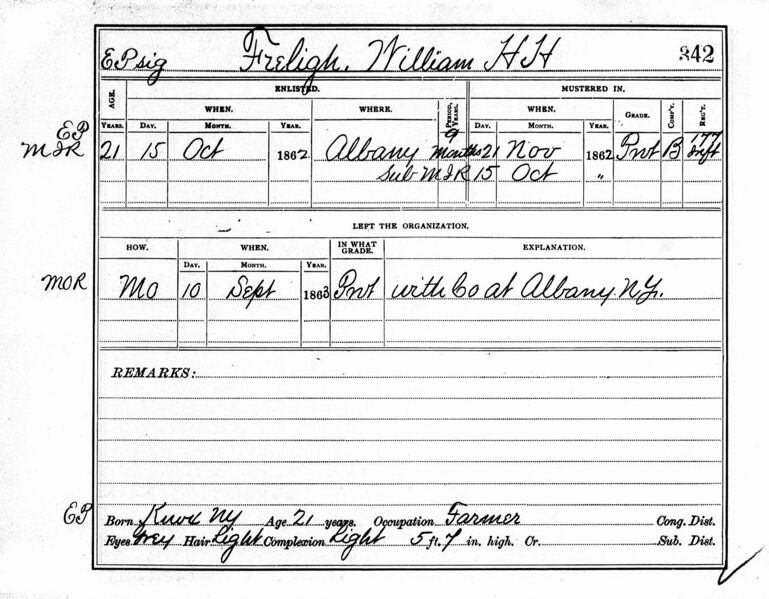 EP sig Freligh, William H H 342
ENLISTED. MUSTERED IN.
AGE. WHEN. WHERE. PERIOD, YEARS. WHEN. GRADE. COMP'Y. REG'T.
YEARS. DAY. MONTH. YEAR. DAY. MONTH. YEAR.
EP 9 177
M I R 21 15 Oct 1862 Albany months 21 Nov 1862 Pvt B Inft
Sub M I R 15 Oct "
LEFT THE ORGANIZATION.
HOW. WHEN. IN WHAT GRADE. EXPLANATION.
DAY. MONTH. YEAR.
MOR Mo 10 Sept 1863 Pvt with Co at Albany N.Y.
REMARKS:
EP Born Knox NY Age 21 years. Occupation Farmer Cong. Dist.
Eyes Grey Hair Light Complexion Light 5 ft. 7 in. high. Cr. Sub. Dist.